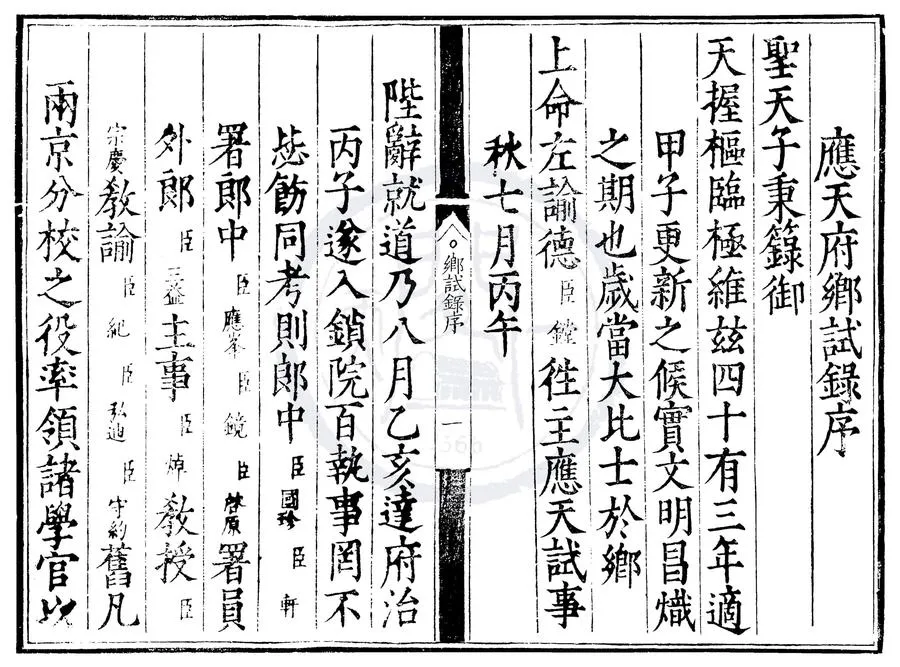 應天府鄉試錄序
聖天子秉籙御
天握樞臨極維茲四十有三年適
甲子更新之候實文明昌熾
之期也歲當大比士於鄉
上命左諭德臣鏜徃主應天試事
秋七月丙午
鄉試錄序
一
陛辭就道乃八月乙亥達府治
丙子遂入鎖院百執事罔不
毖飭同考則郎中臣國珍臣軒
署郎中臣應峯臣鏡臣啓原署員
外郎臣三益主事臣焯教授臣
宗慶教諭臣紀臣弘迪臣守約舊凡
兩京分校之役率領諸學官以